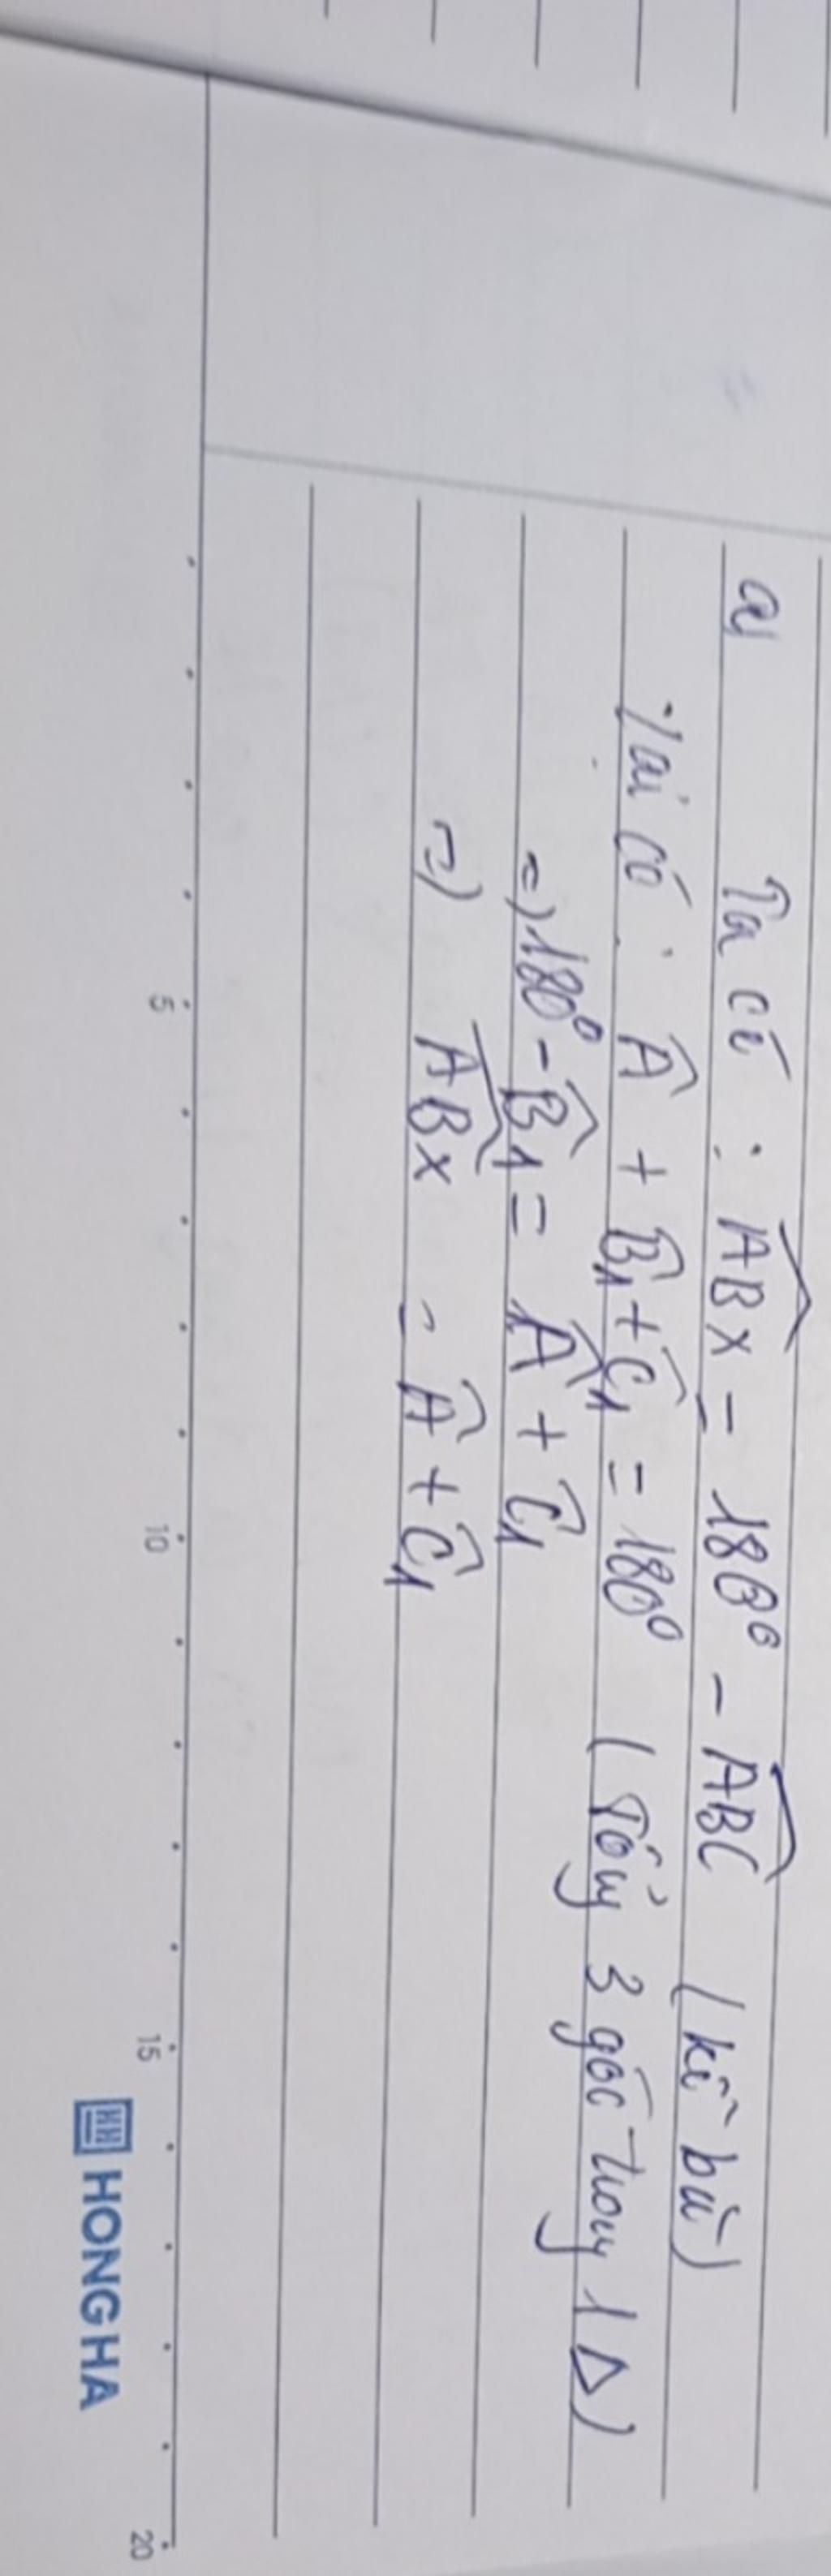 a, Ta có : ABx = 180° - ABC (kề bù)
Lại có : Â + B̂1 + Ĉ1 = 180° (Tổng 3 góc trong 1 Δ)
=> 180° - B̂1 = Â + Ĉ1
=> ABx = Â + Ĉ1
5 10 15 20
HONG HA